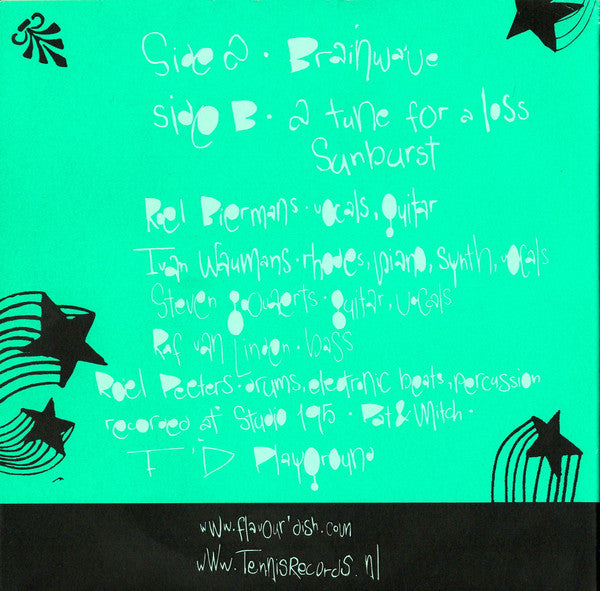 Side a · Brainwave
Side B · a tune for a loss
Sunburst
Roel Biermans · vocals, guitar
Ivan Waumans · rhodes, piano, synth, vocals
Steven Govaerts · guitar, vocals
Raf van Linden · bass
Roel Peeters · drums, electronic beats, percussion
recorded at Studio 195 · Pat & Mitch ·
F'D Playground
www.flavour'dish.com
www.TennisRecords.nl